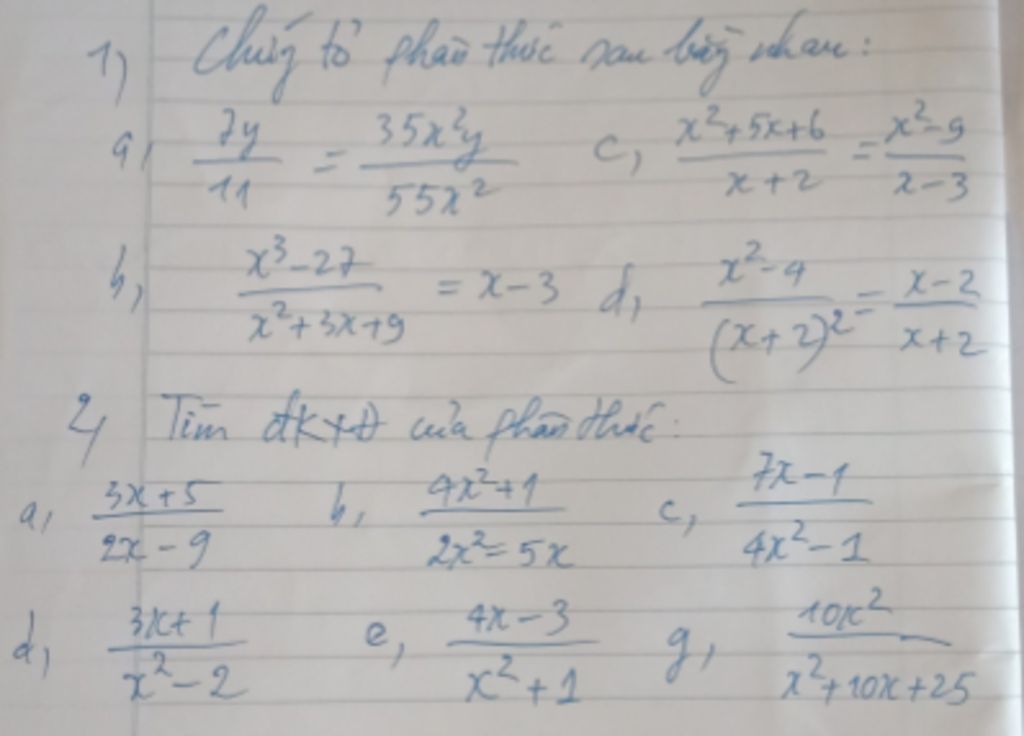 1) Chứng tỏ phân thức sau bằng nhau:
a, 7y/11 = 35x²y/55x² c, (x²+5x+6)/(x+2) = (x²-9)/(x-3)
b, (x³-27)/(x²+3x+9) = x-3 d, (x²-4)/(x+2)² = (x-2)/(x+2)
2, Tìm đkxđ của phân thức:
a, (3x+5)/(2x-9) b, (4x²+1)/(2x²=5x) c, (7x-1)/(4x²-1)
d, (3x+1)/(x²-2) e, (4x-3)/(x²+1) g, 10x²/(x²+10x+25)